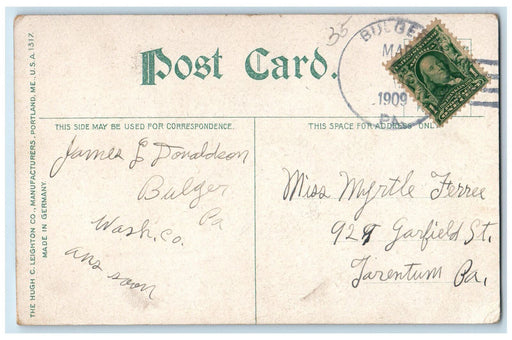 THE HUGH C. LEIGHTON CO., MANUFACTURERS, PORTLAND, ME., U.S.A. 1317
MADE IN GERMANY
Post Card.
35
BULGER
MAR
1909
PA.
THIS SIDE MAY BE USED FOR CORRESPONDENCE.
THIS SPACE FOR ADDRESS ONLY
James L Donaldson
Bulger
Pa
Wash. Co.
ans soon
Miss Myrtle Ferree
927 Garfield St.
Tarentum Pa.